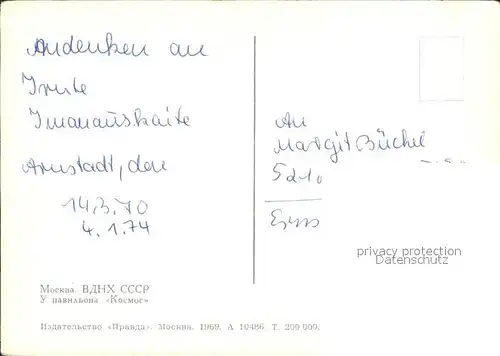 Andenken an
Irute
Imanauskaite
Arnstadt, den
14.3.70
4.1.74
An
Margit Büchel
521o
privacy protection
Datenschutz
Москва. ВДНХ СССР
У павильона «Космос»
Издательство «Правда». Москва. 1969. А 10486. Т. 200 000.